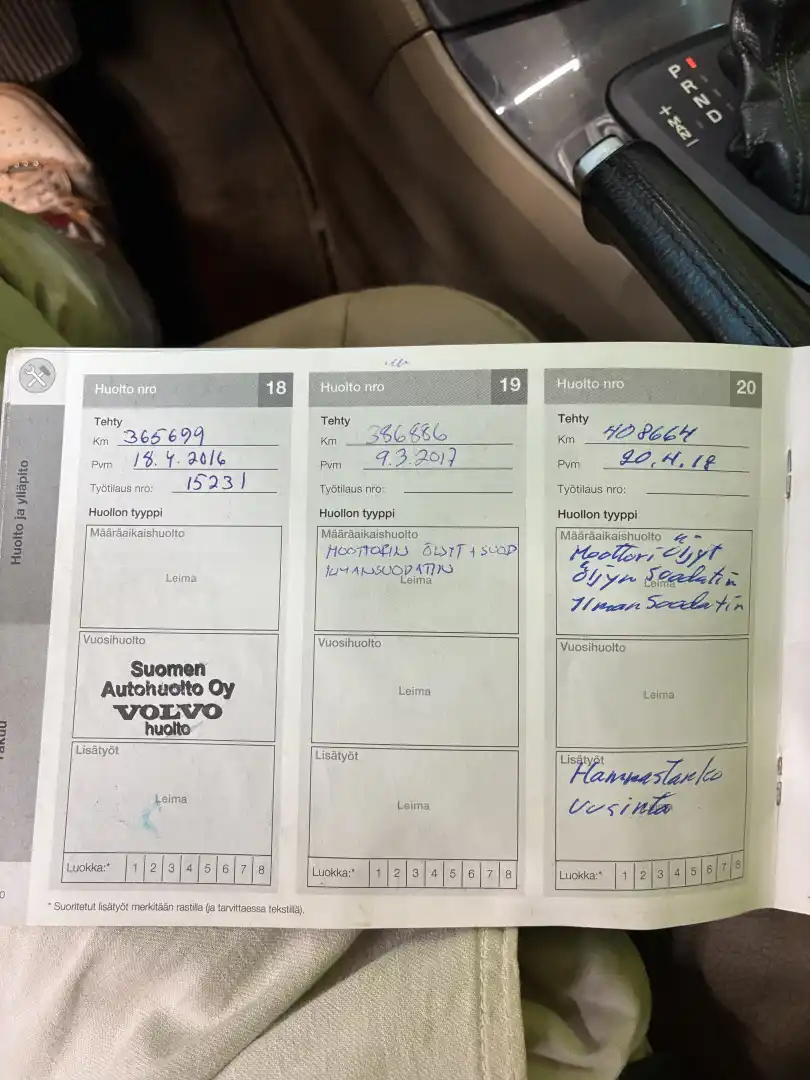 P
R
N
D
+
M
-
Huolto ja ylläpito
Huolto nro 18
Tehty
Km 365699
Pvm 18.4.2016
Työtilaus nro: 15231
Huollon tyyppi
Määräaikaishuolto
Leima
Vuosihuolto
Suomen
Autohuolto Oy
VOLVO
huolto
Lisätyöt
Leima
Luokka:* 1 2 3 4 5 6 7 8
Huolto nro 19
Tehty
Km 386886
Pvm 9.3.2017
Työtilaus nro:
Huollon tyyppi
Määräaikaishuolto
MOOTTORIN ÖLJYT + SUOD
ILMANSUODATIN
Leima
Vuosihuolto
Leima
Lisätyöt
Leima
Luokka:* 1 2 3 4 5 6 7 8
Huolto nro 20
Tehty
Km 408664
Pvm 20.4.18
Työtilaus nro:
Huollon tyyppi
Määräaikaishuolto
Moottori Öljyt
Öljyn Soodatin
Leima
Ilman Soodatin
Vuosihuolto
Leima
Lisätyöt
Hammastanko
Uusinta
Luokka:* 1 2 3 4 5 6 7 8
* Suoritetut lisätyöt merkitään rastilla (ja tarvittaessa tekstillä).